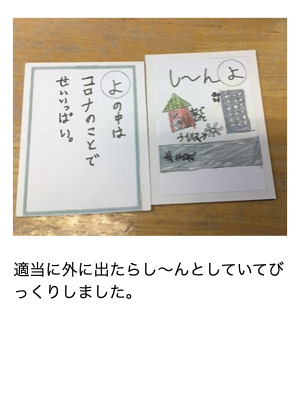 よの中は
コロナのことで
せいいっぱい。
し～んよ
適当に外に出たらし～んとしていてび
っくりしました。